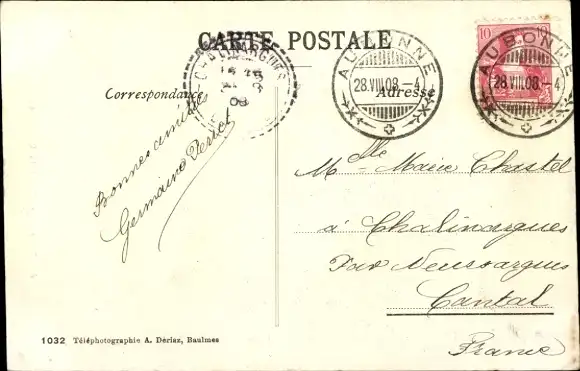 CARTE POSTALE
Correspondance
Adresse
CHALINARGUES
08
AUBONNE
28.VIII.08.-4
AUBONNE
28.VIII.08.-4
10 10
Bonnes amitiés
Germaine
Mlle Marie Chastel
à Chalinargues
Par Neussargues
Cantal
France
1032 Téléphotographie A. Deriaz, Baulmes